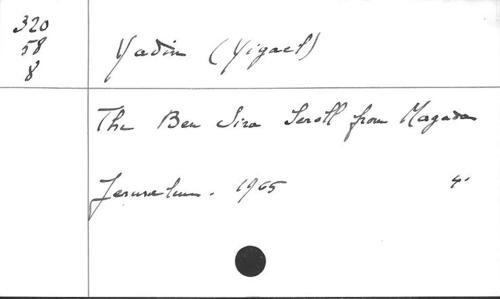 320
58
8
Yadin (Yigael)
The Ben Sira Scroll from Magada
Jerusalem. 1965 4°